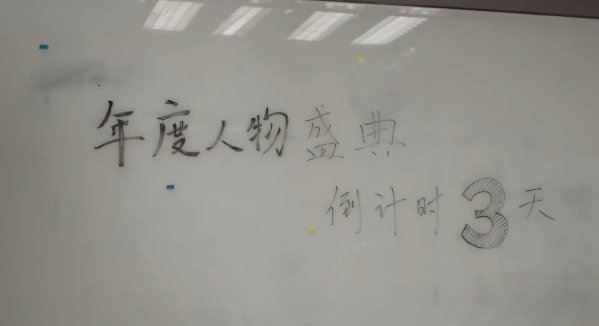 年度人物盛典
倒计时3天